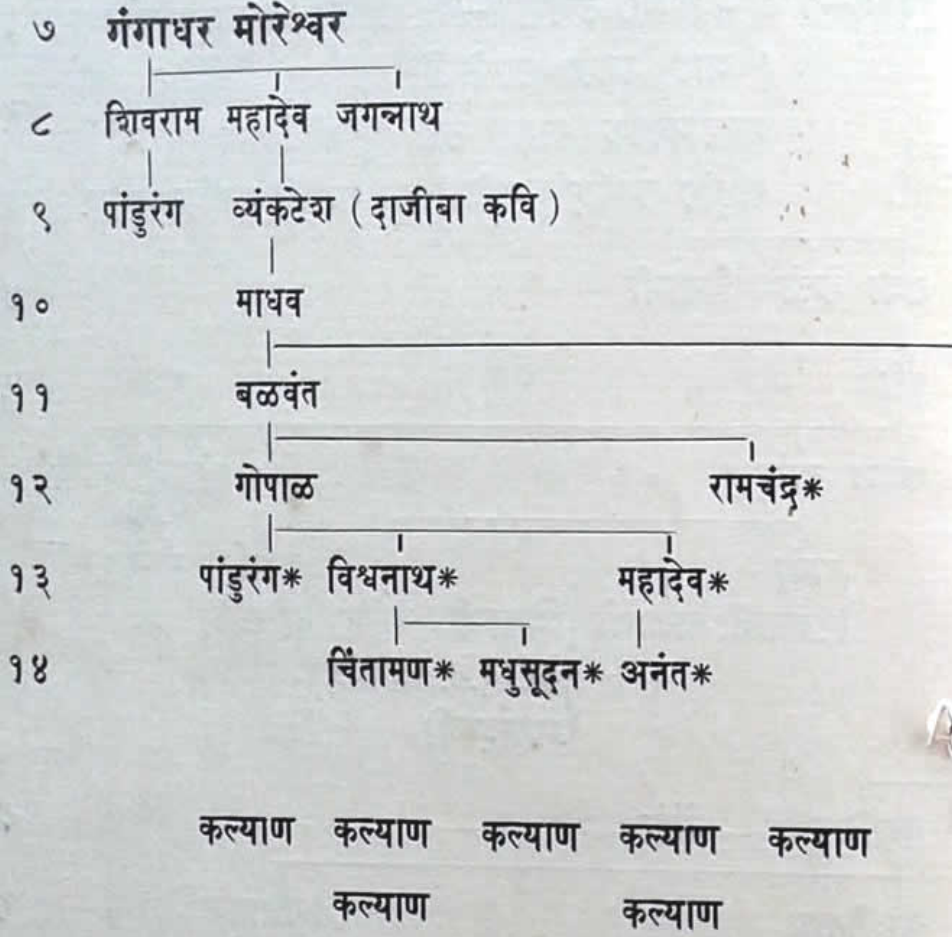 ७ गंगाधर मोरेश्वर
८ शिवराम महादेव जगन्नाथ
९ पांडुरंग व्यंकटेश (दाजीबा कवि)
१० माधव
११ बळवंत
१२ गोपाळ रामचंद्र*
१३ पांडुरंग* विश्वनाथ* महादेव*
१४ चिंतामण* मधुसूदन* अनंत*
कल्याण कल्याण कल्याण कल्याण कल्याण
कल्याण कल्याण